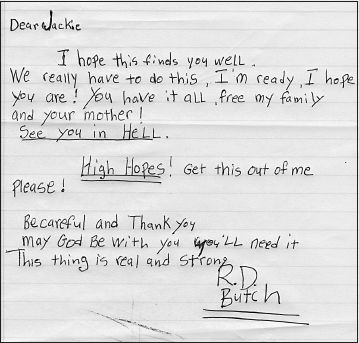 Dear Jackie
I hope this finds you well.
We really have to do this, I'm ready, I hope
you are! You have it all, free my family
and your mother!
See you in HeLL.
High Hopes! Get this out of me
please!
Becareful and Thank you
may God Be with you you'LL need it
This thing is real and strong
R.D.
Butch